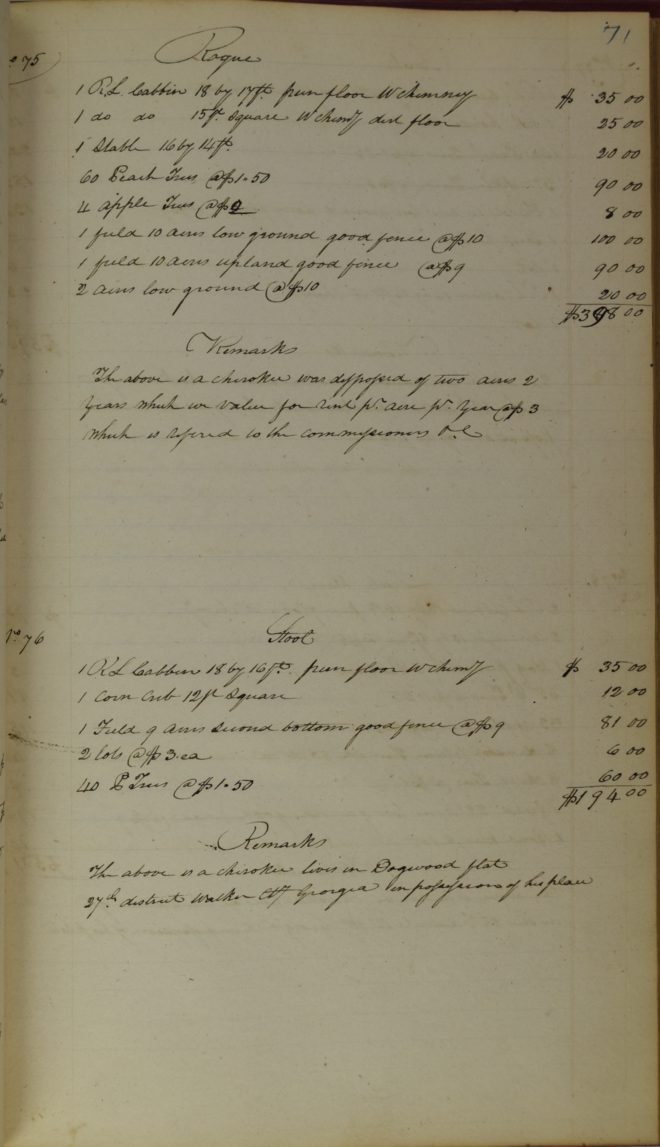 71
No 75) Rogue
1 R.L. Cabbin 18 by 17ft. pun floor W chimney $ 35 00
1 do do 15ft. Square W chimy dirt floor 25 00
1 Stable 16 by 14ft. 20 00
60 Peach Trees @$1.50 90 00
4 apple Trees @$2 8 00
1 field 10 acres low ground good fence @$10 100 00
1 field 10 acres upland good fence @$9 90 00
2 acres low ground @$10 20 00
$398 00
Remarks
The above is a cherokee was dispossed of two acres 2
years which we value for rent pr. acre pr. year @$3
which is refered to the commissioners &c
No 76 Stool
1 R L Cabbin 18 by 16ft. pun floor W chimy $ 35 00
1 corn crib 12ft Square 12 00
1 Field 9 acres second bottom good fence @$9 81 00
2 lots @$3.ea 6 00
40 P Trees @$1.50 60 00
$194 00
Remarks
The above is a cherokee lives in Dogwood flat
27th district Walker Cty Georgia in possessions of his place